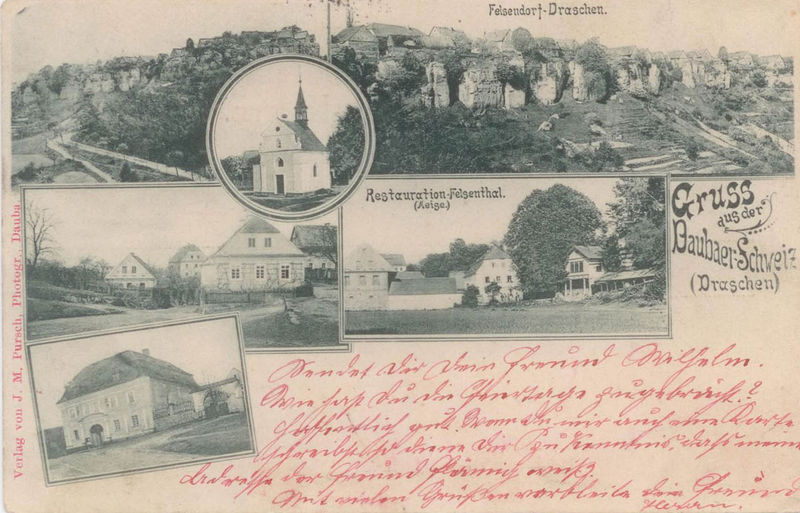 Felsendorf-Draschen.
Restauration-Felsenthal.
(Neige.)
Gruss
aus der
Daubaer-Schweiz
(Draschen)
Verlag von J. M. Pursch, Photogr., Dauba.
Sendet Dir Dein Freund Wilhelm.
Wie hast Du die Feiertage zugebracht?
Hoffentlich gut. Wenn Du mir auch eine Karte
schreibst so diene Dir zu Kenntnis, dass meine
Adresse der Freund weiß
Mit vielen Grüßen verbleibe dein Freund